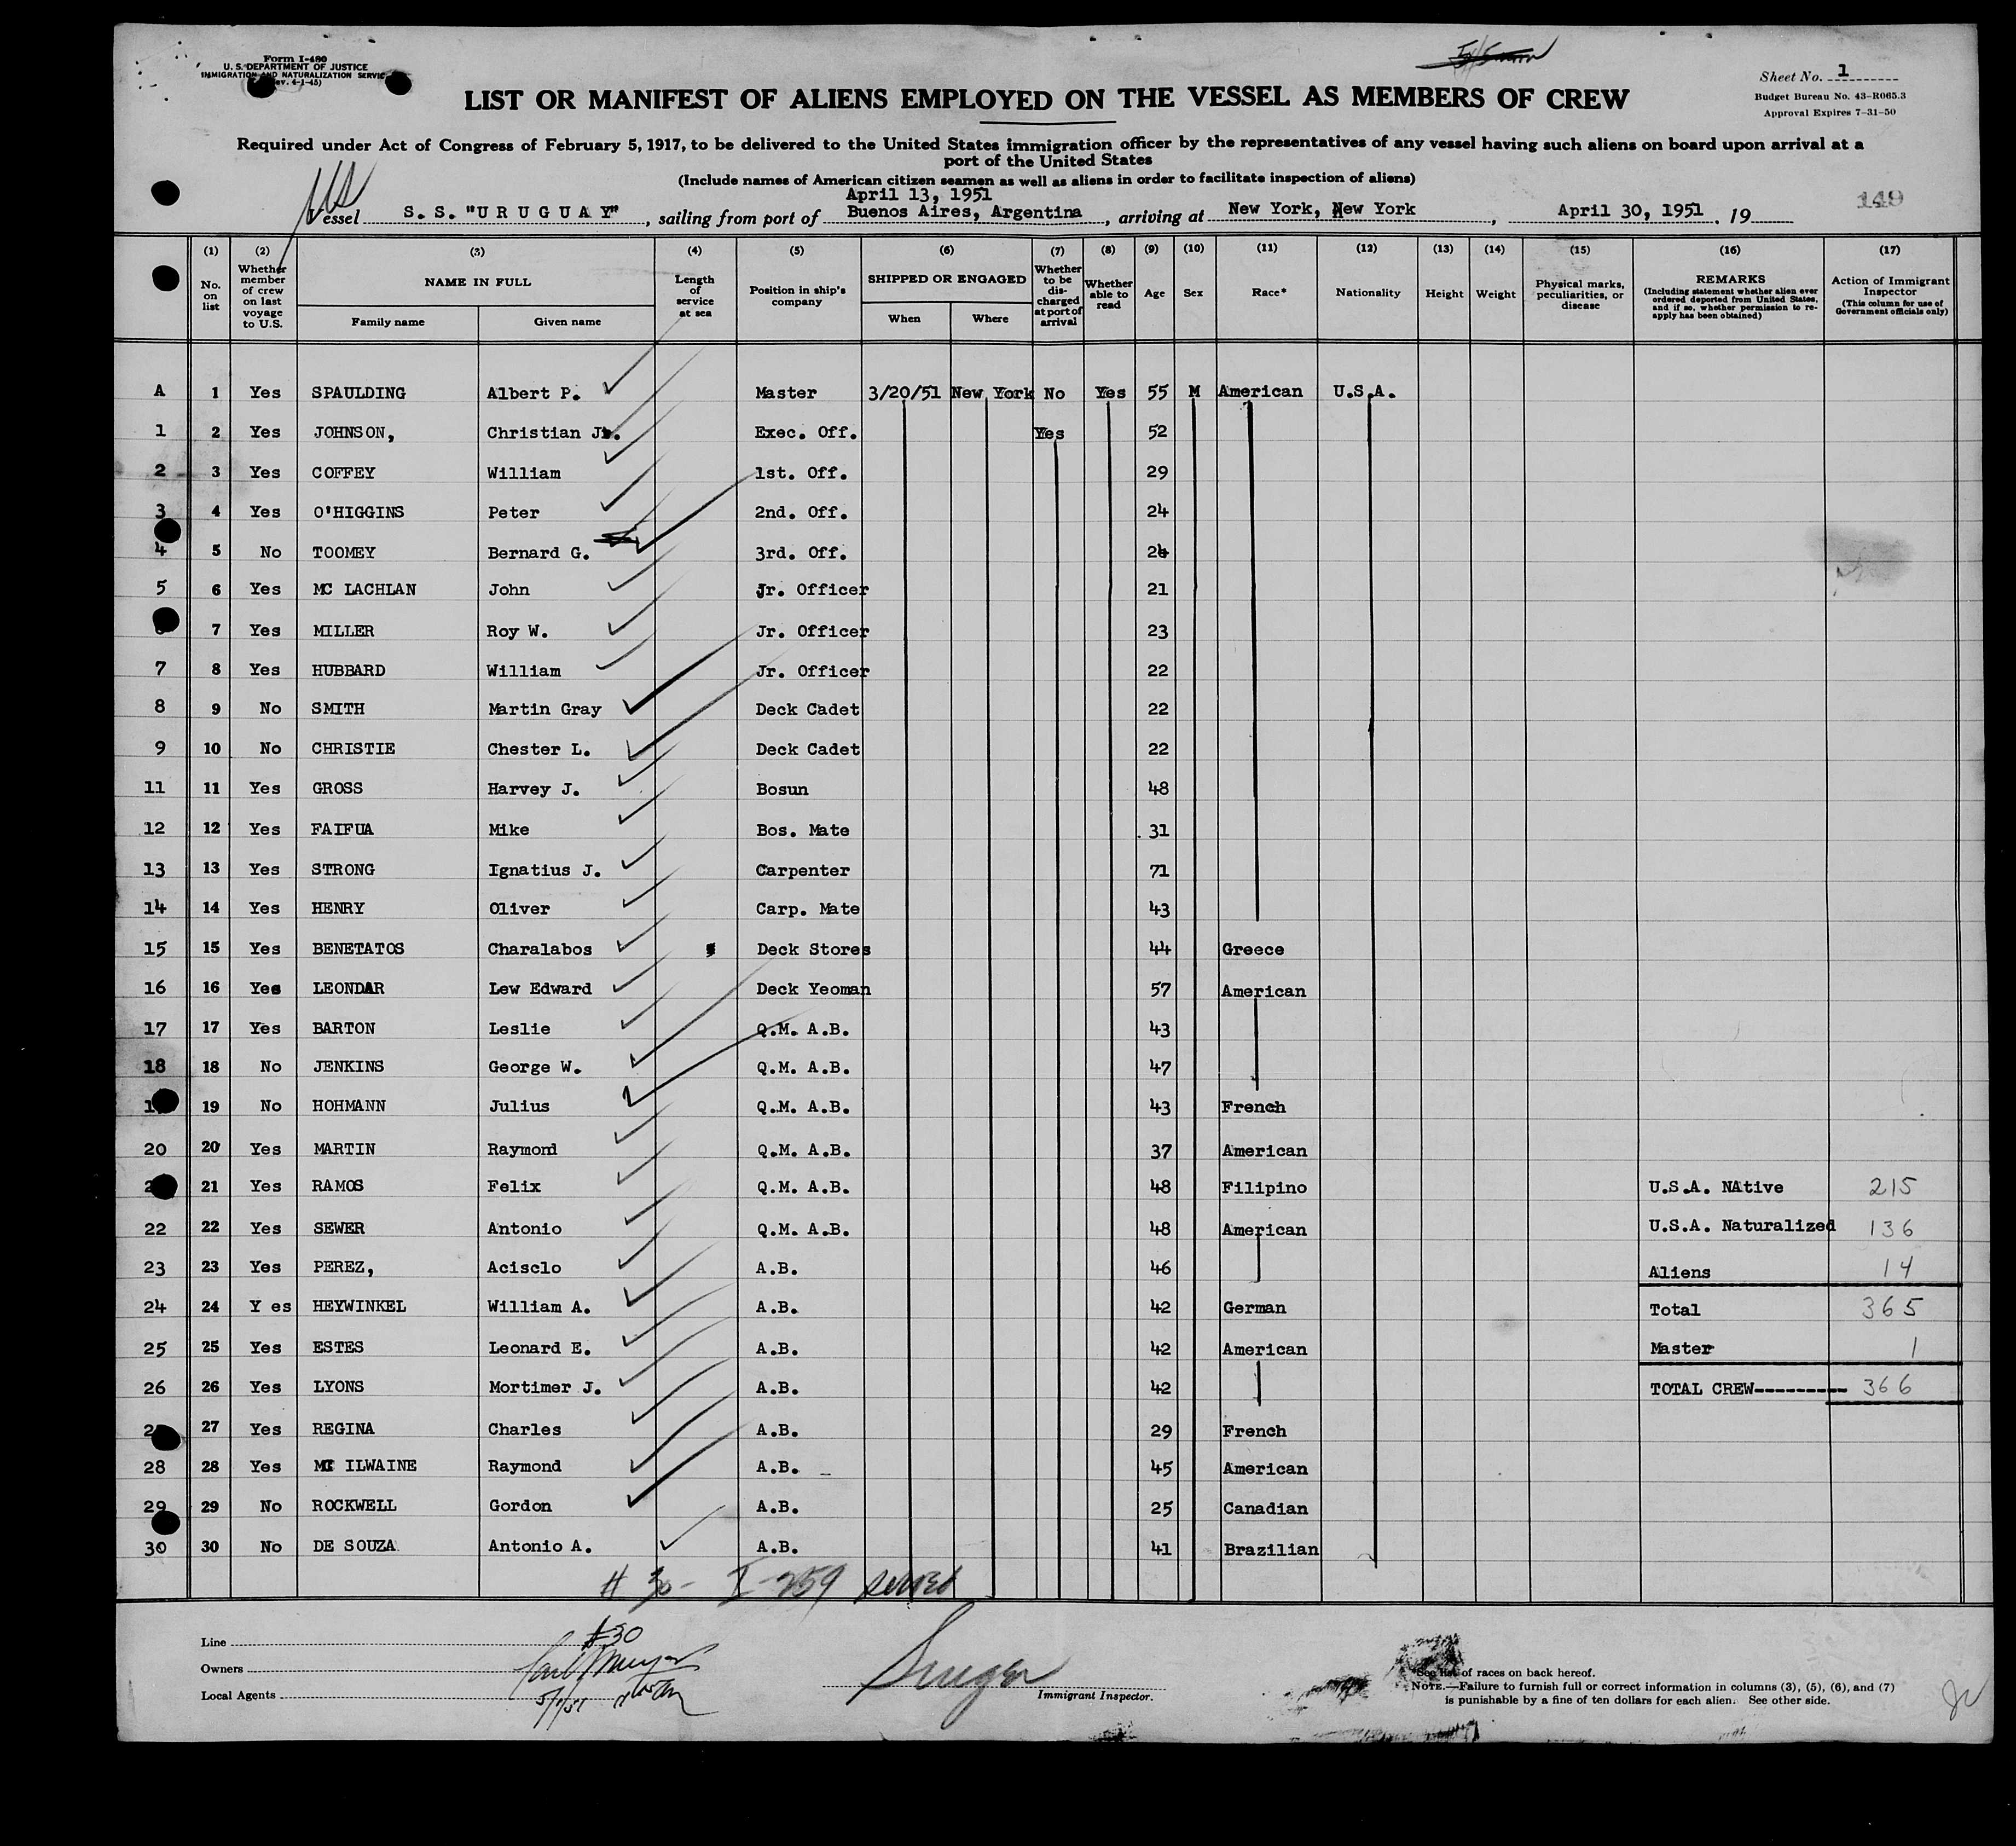 Form I-480
U. S. DEPARTMENT OF JUSTICE
IMMIGRATION AND NATURALIZATION SERVICE
(Rev. 4-1-45)
Sheet No. 1
Budget Bureau No. 43-R065.3
Approval Expires 7-31-50
LIST OR MANIFEST OF ALIENS EMPLOYED ON THE VESSEL AS MEMBERS OF CREW
Required under Act of Congress of February 5, 1917, to be delivered to the United States immigration officer by the representatives of any vessel having such aliens on board upon arrival at a
port of the United States
(Include names of American citizen seamen as well as aliens in order to facilitate inspection of aliens)
April 13, 1951
Vessel S. S. "U R U G U A Y" , sailing from port of Buenos Aires, Argentina , arriving at New York, New York , April 30, 1951 , 19
149
(1) (2) (3) (4) (5) (6) (7) (8) (9) (10) (11) (12) (13) (14) (15) (16) (17)
No. on list
Whether member of crew on last voyage to U.S.
NAME IN FULL
Family name Given name
Length of service at sea
Position in ship's company
SHIPPED OR ENGAGED
When Where
Whether to be discharged at port of arrival
Whether able to read
Age
Sex
Race*
Nationality
Height
Weight
Physical marks, peculiarities, or disease
REMARKS
(Including statement whether alien ever ordered deported from United States, and if so, whether permission to reapply has been obtained)
Action of Immigrant Inspector
(This column for use of Government officials only)
A 1 Yes SPAULDING Albert P. Master 3/20/51 New York No Yes 55 M American U.S.A.
1 2 Yes JOHNSON, Christian Jr. Exec. Off. Yes 52
2 3 Yes COFFEY William 1st. Off. 29
3 4 Yes O'HIGGINS Peter 2nd. Off. 24
4 5 No TOOMEY Bernard G. 3rd. Off. 24
5 6 Yes MC LACHLAN John Jr. Officer 21
7 Yes MILLER Roy W. Jr. Officer 23
7 8 Yes HUBBARD William Jr. Officer 22
8 9 No SMITH Martin Gray Deck Cadet 22
9 10 No CHRISTIE Chester L. Deck Cadet 22
11 11 Yes GROSS Harvey J. Bosun 48
12 12 Yes FAIFUA Mike Bos. Mate 31
13 13 Yes STRONG Ignatius J. Carpenter 71
14 14 Yes HENRY Oliver Carp. Mate 43
15 15 Yes BENETATOS Charalabos Deck Stores 44 Greece
16 16 Yes LEONDAR Lew Edward Deck Yeoman 57 American
17 17 Yes BARTON Leslie Q.M. A.B. 43
18 18 No JENKINS George W. Q.M. A.B. 47
19 No HOHMANN Julius Q.M. A.B. 43 French
20 20 Yes MARTIN Raymond Q.M. A.B. 37 American
21 Yes RAMOS Felix Q.M. A.B. 48 Filipino U.S.A. NAtive 215
22 22 Yes SEWER Antonio Q.M. A.B. 48 American U.S.A. Naturalized 136
23 23 Yes PEREZ, Acisclo A.B. 46 Aliens 14
24 24 Y es HEYWINKEL William A. A.B. 42 German Total 365
25 25 Yes ESTES Leonard E. A.B. 42 American Master 1
26 26 Yes LYONS Mortimer J. A.B. 42 TOTAL CREW--------- 366
27 Yes REGINA Charles A.B. 29 French
28 28 Yes MC ILWAINE Raymond A.B. 45 American
29 29 No ROCKWELL Gordon A.B. 25 Canadian
30 30 No DE SOUZA Antonio A. A.B. 41 Brazilian
# 30- I-259 served
Line
#30
Owners
Local Agents
5/1/51
Immigrant Inspector.
*See list of races on back hereof.
NOTE.—Failure to furnish full or correct information in columns (3), (5), (6), and (7)
is punishable by a fine of ten dollars for each alien. See other side.